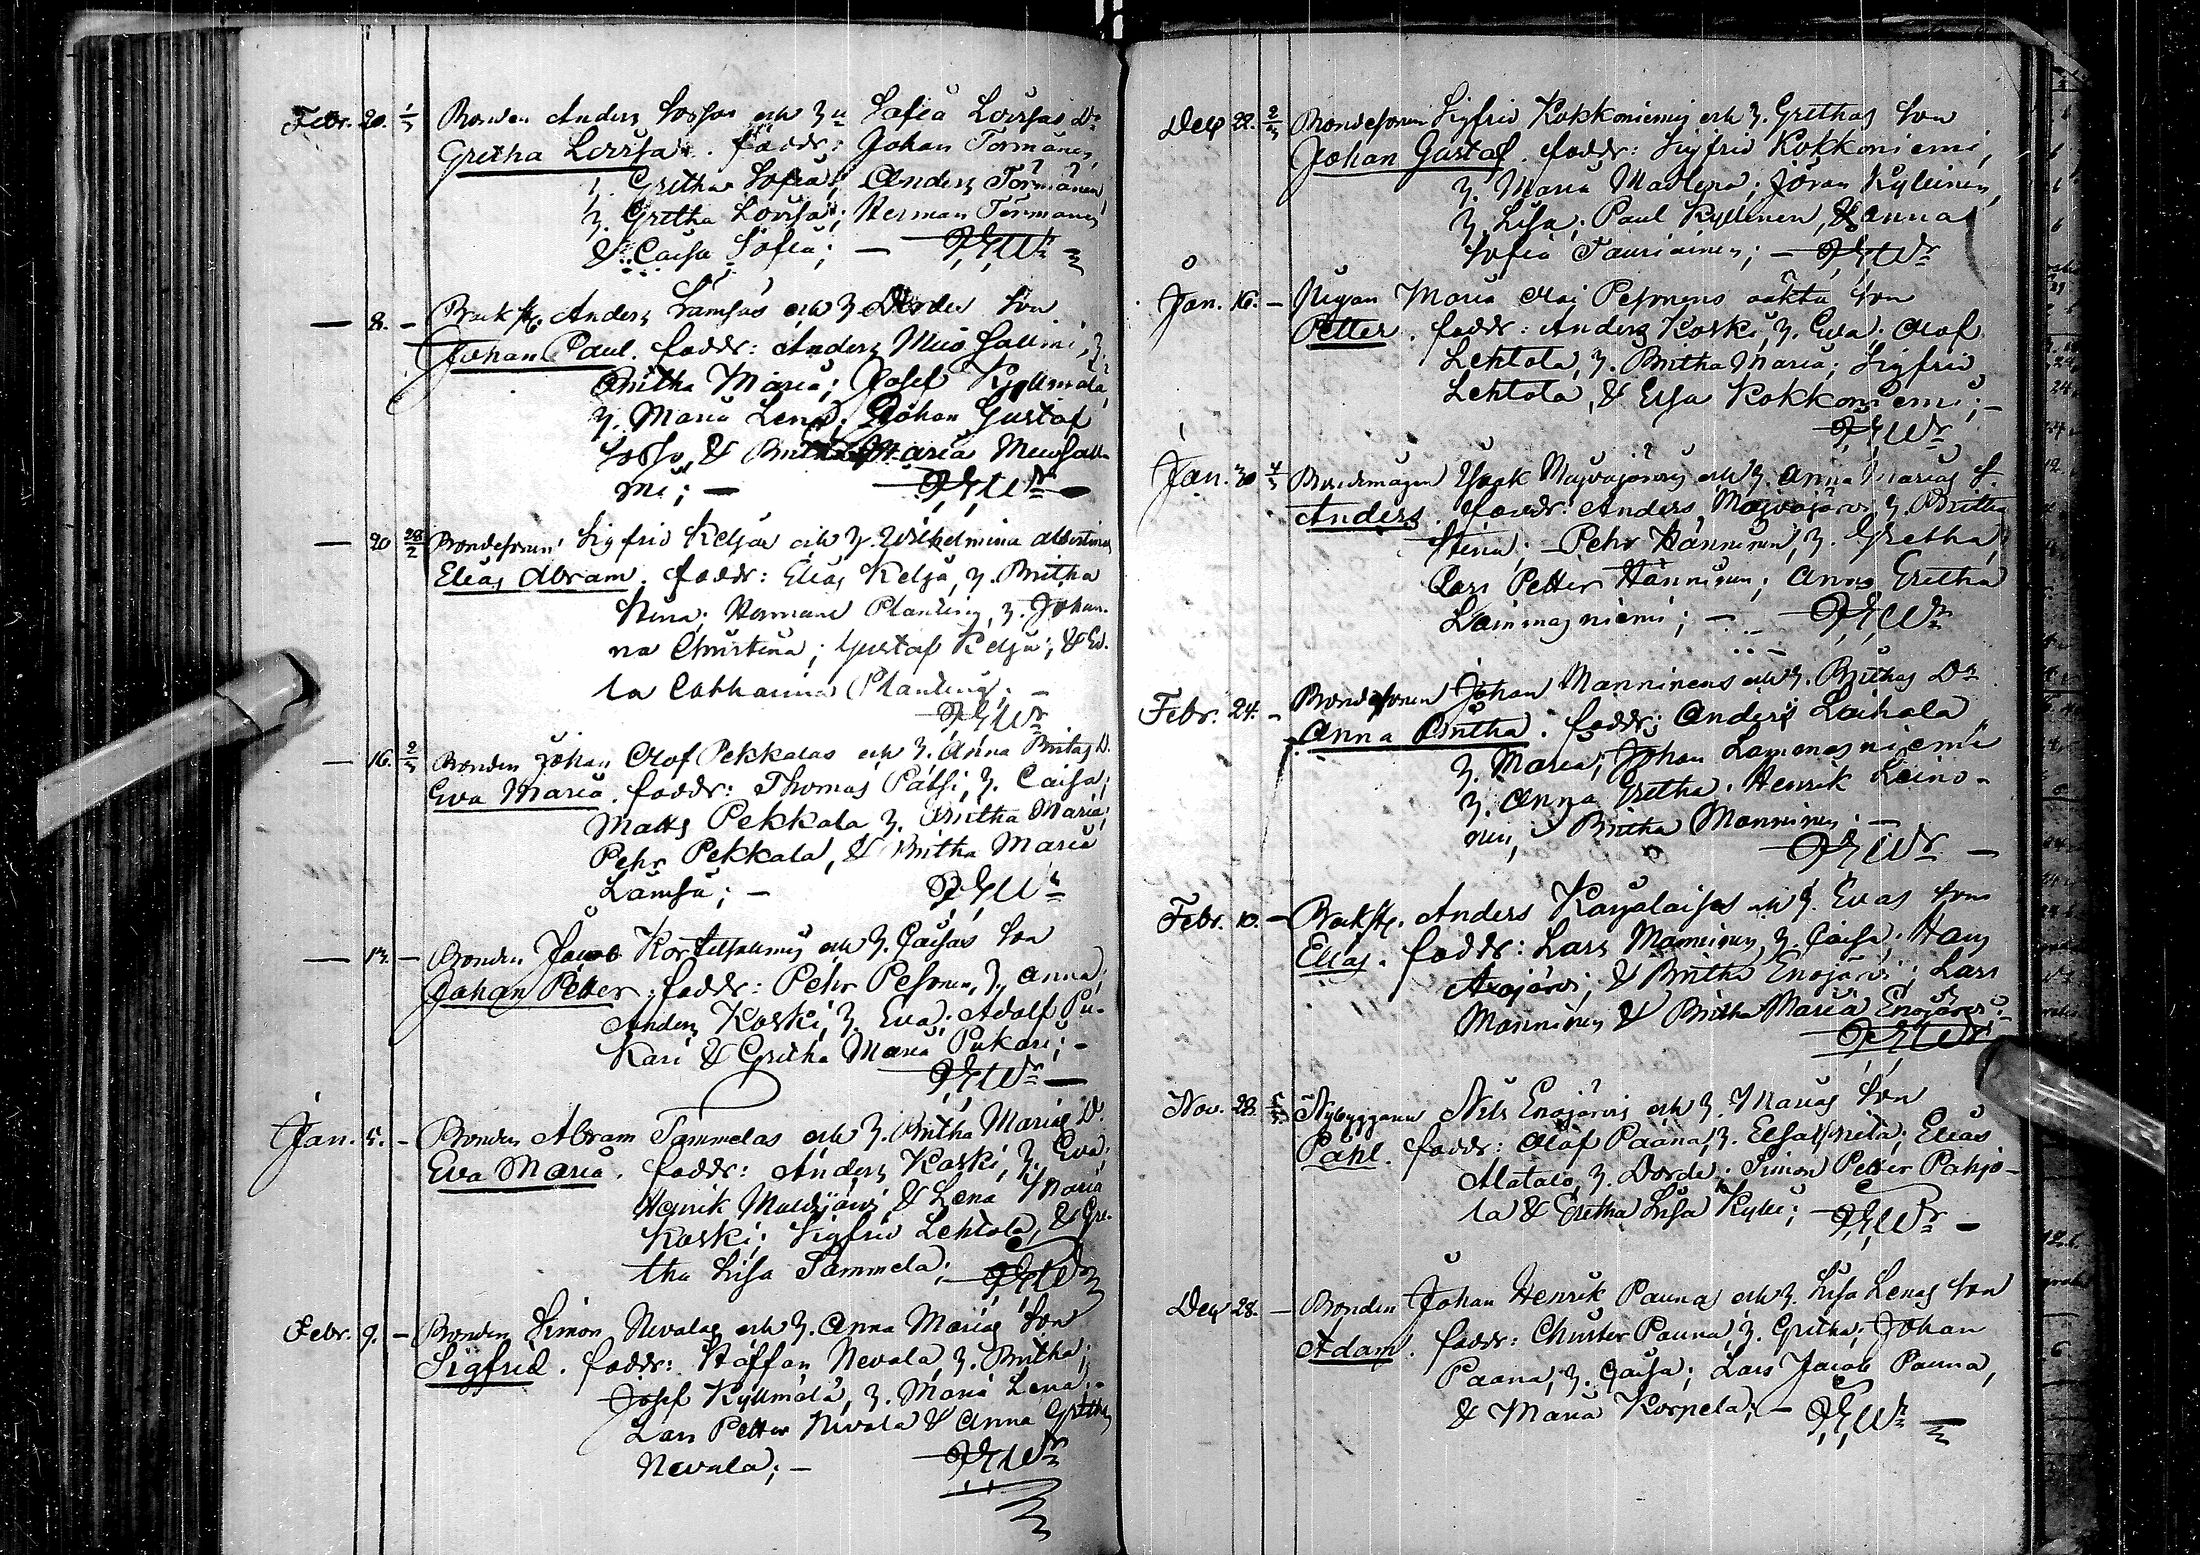 Febr. 20. 1/3 Bonden Anders Sossos och h: u Sofia Lovisas Dr
Gretha Lovisa. faddr: Johan Törmänen,
h. Gretha Sofia; Anders Törmänen,
h. Gretha Lovisa; Herman Törmänen
& Caisa Sofia; —
— 8. - Bruksk. Anders Lamsas och h. Dordes Son
Johan Paul. faddr: Anders Muosalmi, h.
Britha Maria; Josef Kyllmälä,
h. Maria Lena; Johan Gustaf
Sosso, & Britha Maria Muosall-
mi; —
— 20 28/2 Bondesonen Sigfrid Keljas och h. Wilhelmina Albertinas
Elias Abram. faddr: Elias Kelja, h. Britha
Stina; Herman Planting, h. Johan-
na Christina; Gustaf Kelja; & Ed-
la Catharina Planting; —
— 16. 2/3 Bonden Johan Olof Pekkalas och h. Anna Britas D.
Eva Maria. faddr: Thomas Patsi, h. Caisa;
Matts Pekkala h. Britha Maria;
Pehr Pekkala, & Britha Maria
Lämsä; —
— 13. - Bonden Jacob Kortesalmis och h. Caisas Son
Johan Petter. faddr: Pehr Pesonen, h. Anna;
Anders Koski, h. Eva; Adolf Pu-
kari & Gretha Maria Pukari; -
Jan. 5. - Bonden Abram Tammelas och h. Britha Marias D.
Eva Maria. faddr: Anders Koski, h. Eva;
Henrik & Lena Maria
Koski; Sigfrid Lehtola, & Gre-
tha Lisa Tammela;
Febr. 9. - Bonden Simon Nevalas och h. Anna Marias Son
Sigfrid. faddr: Staffan Nevala, h. Britha;
Josef Kyllmälä, h. Maria Lena;
Lars Petter Nevala & Anna Gretha
Nevala; —
Dec 22. 2/3 Bondesonen Sigfrid Kokkoniemis och h. Grethas Son
Johan Gustaf. faddr: Sigfrid Kokkoniemi,
h. Maria Madlena; Jöran Kyllinen,
h. Lisa; Paul Kyllinen, & Anna
Sofia Tauriainen; —
Jan. 16. - Pigan Maria Olai Pesonens oäkta Son
Petter. faddr: Anders Koski, h. Eva; Olof
Lehtola, h. Britha Maria; Sigfrid
Lehtola, & Elsa Kokkoniemi; —
Jan. 30 4/3 Bondemågen Isak och h. Anna Marias S.
Anders. faddr: Anders h. Britha
Stina; Pehr Hänninen, h. Gretha;
Lars Petter Hänninen; Anna Gretha
Lammasniemi; —
Febr. 24. - Bondesonen Johan Manninens och h. Brithas Dr
Anna Britha. faddr: Anders Laihola
h. Maria; Johan Lammasniemi
h. Anna Gretha; Henrik Leino-
nen, Britha Manninen; —
Febr. 10. - Bruksk. Anders Karjalaisas och h. Evas Son
Elias. faddr: Lars Manninen, h. Caisa; Hans
& Britha Enojärvi; Lars
Manninen & Britha Maria Enojärvi; —
Nov. 28. 5/3 Nybyggaren Nils Enojärvis och h. Marias Son
Pahl. faddr: Olof Paana, h. Elsa Greta; Elias
Alatalo, h. Dorde; Simon Petter Pahjo-
la & Gretha Lisa Kyle; —
Dec 28. - Bonden Johan Henrik Paunas och h. Lisa Lenas Son
Adam. faddr: Christer Pauna, h. Gretha; Johan
Paana, h. Caisa; Lars Jacob Pauna,
& Maria Korpela; —